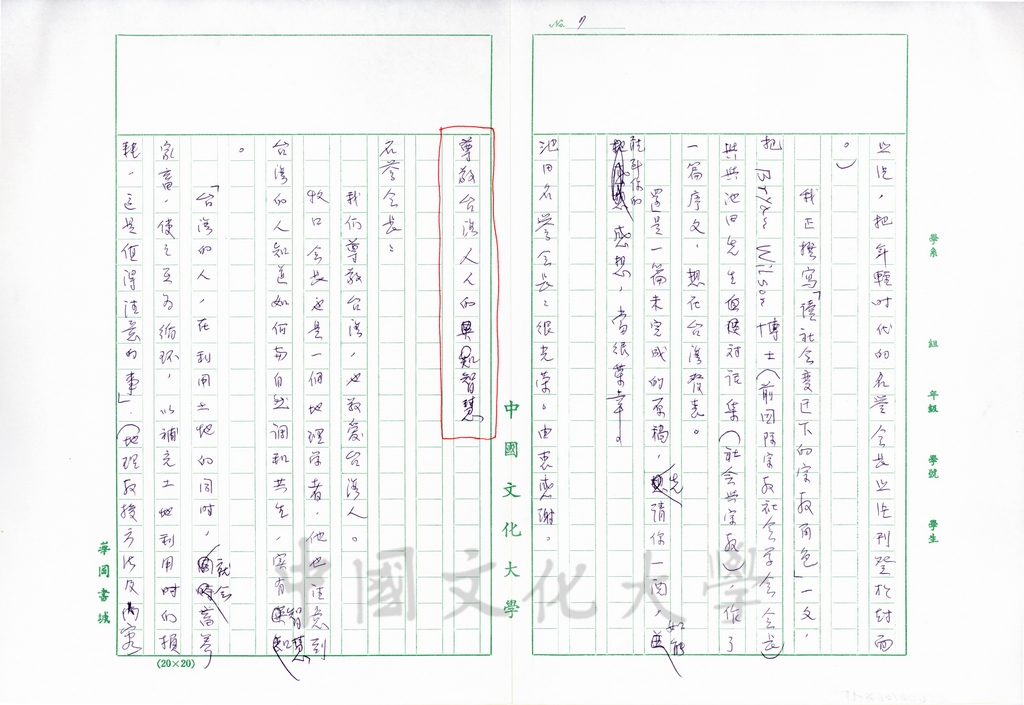 No. 7
學系 組 年級 學號 學生
之注，把年輕時代的名譽會長之注刊登於封面
。）
我正撰寫「讀社會變遷下的宗教角色」一文，
把 Bryan Wilson 博士（前國際宗教社會學會會長）
與池田先生對話集（社會與宗教），作了
一篇序文，想在台灣發表。
還是一篇未完成的原稿，先請你一閱，如能
能到你的感想，當很榮幸。
池田名譽會長：很光榮。由衷感謝。
中國文化大學
尊敬台灣人人的智慧
名譽會長：
我們尊敬台灣，也敬愛台灣人。
牧口會長也是一個地理學者，他也注意到
台灣的人知道如何與自然調和共生，富有智慧
。
「台灣的人，在利用土地的同時，就會畜養
家畜，使之互為循環，以補充土地利用時的損
耗，這是值得注意的事」．（地理教授方法及內容
(20×20)
華岡書城
中國文化大學